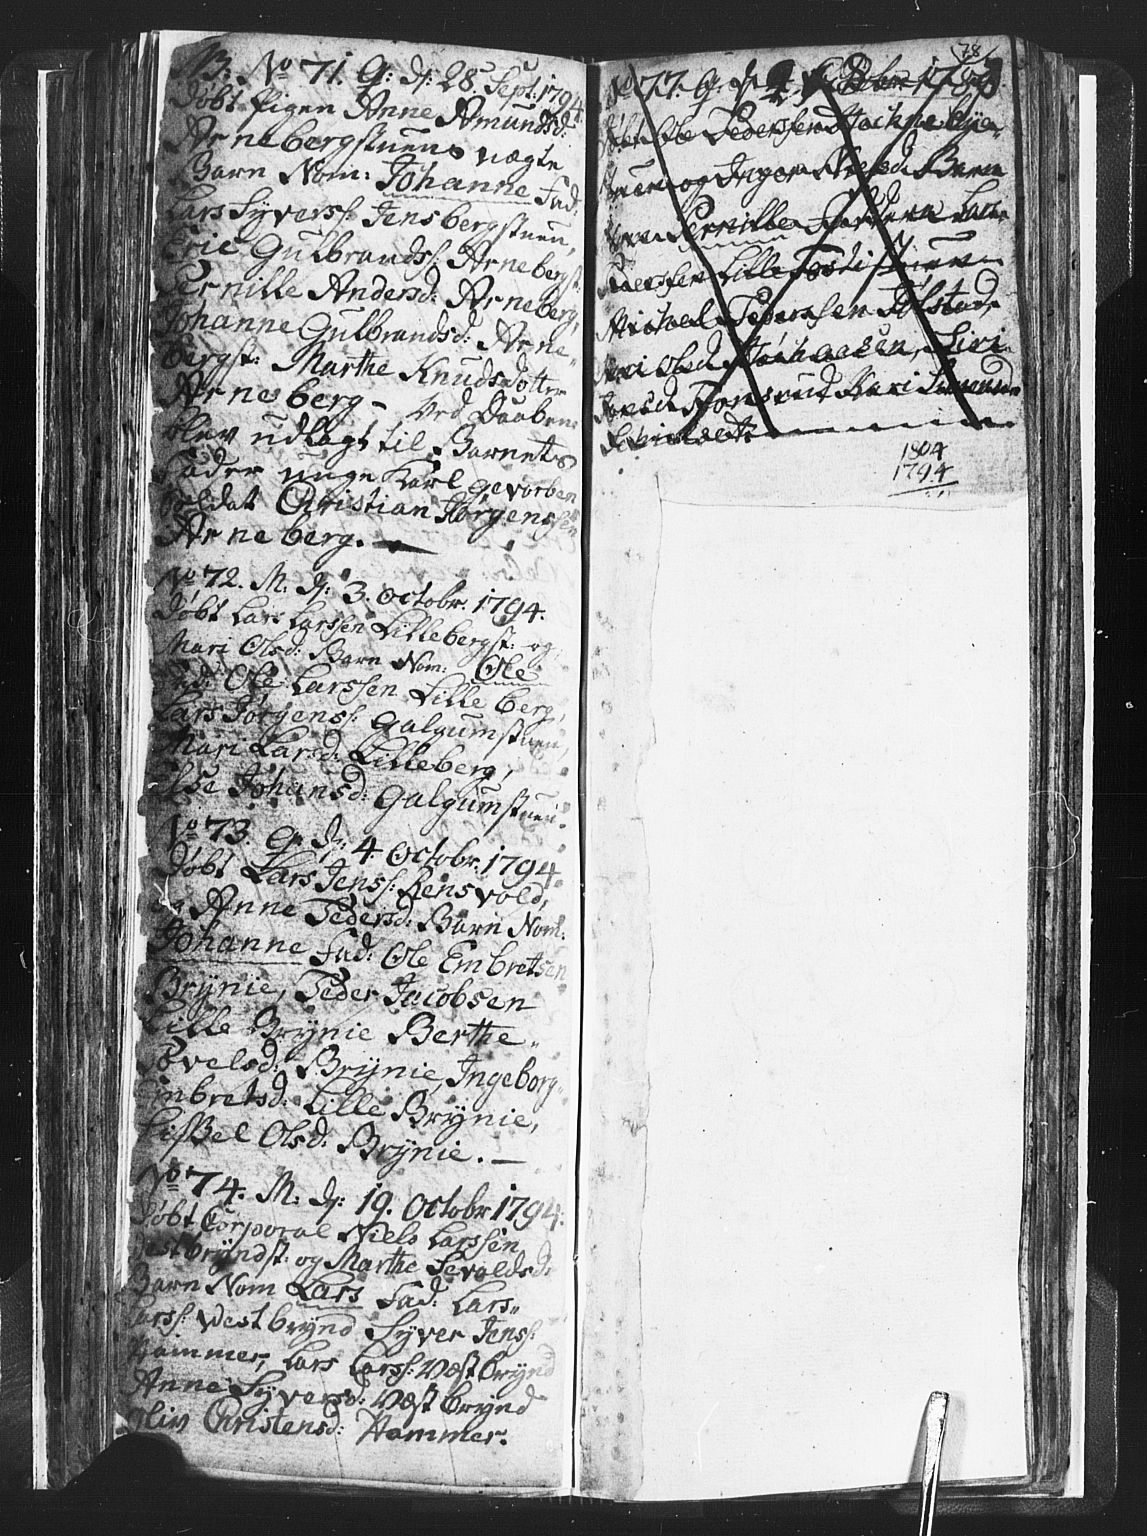 NB. No 71. G: d: 28 Sept: 1794
Døbt Pigen Anne Amundsd:
Arnebergstuens uægte
Barn Nom: Johanne Fad:
Lars Syverss: Jensbergstuen,
Eric Gulbrands: Arnebergst:
Pernille Andersd: Arneberg,
Johanne Gulbrandsd: Arne-
bergst: Marthe Knudsdotter
Arnesberg - Ved Daaben
blev udlagt til Barnets
Fader unge Karl gevorben
Soldat Christian Jørgenssen
Arneberg. —
No 72. M. d: 3. Octobr. 1794.
Døbt Lars Larssen Lillebergst: og
Mari Olsd: Barn Nom: Ole
Fad: Ole Larssen Lilleberg,
Lars Jørgenss: Galgumstuen,
Mari Larsd: Lilleberg,
Else Johansd: Galgumstuen.
No 73. G. d: 4. Octobr. 1794.
Døbt Lars Jenss: Rensvold,
og Anne Pedersd: Barn Nom:
Johanne Fad: Ole Embretsen
Brÿnie, Peder Jacobsen
Lille Brÿnie Berthe
Povelsd: Brÿnie, Ingeborg
Embretsd: Lille Brÿnie,
Lisbel Olsd: Brÿnie. —
No 74. M: d: 19. Octobr 1794.
Døbt Corporal Niels Larssen
Vestbrÿndst: og Marthe Sevaldsd:
Barn Nom Lars Fad: Lars
Larss: Vestbrÿnd Syver Jenss:
Hammer, Lars Larss: Væstbrÿnd
Anne Syversd: Væstbrÿnd
Oliv Christensd: Hammer.
78
No 77. G. d:
Ole Pederssen
og Inger Nielsd: Barn
Pernille Lars
Pederssen Lille
Michael Pederssen
Olsd Siri
Kari
1804
1794